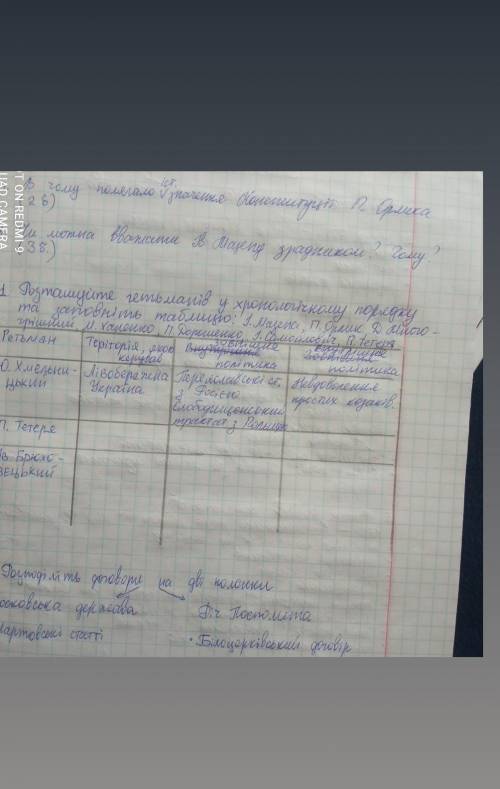 OT ON REDMI 9
UAD CAMERA
В чому полягало іст. значення Конституції П. Орлика
2 б)
можна вважати І. Мазепу зрадником? Чому?
3 б.)
1 Розташуйте гетьманів у хронологічному порядку
та заповніть таблицю: І. Мазепа, П. Орлик, Д. Много-
грішний, М. Ханенко, П. Дорошенко, І. Самойлович, П. Тетеря
Гетьман
Територія, якою керував
Внутрішня зовнішня політика
Зовнішня внутрішня політика
Ю. Хмельни-
цький
Лівобережна
Україна
Переяславські ст.
з Росією
Слободищенський
трактат з Річчю
Невдоволення
простих козаків.
П. Тетеря
Ів. Брюхо-
вецький
Розподіліть договори на дві колонки
московська держава
Річ Посполита
Мартовські статті
• Білоцерківський договір